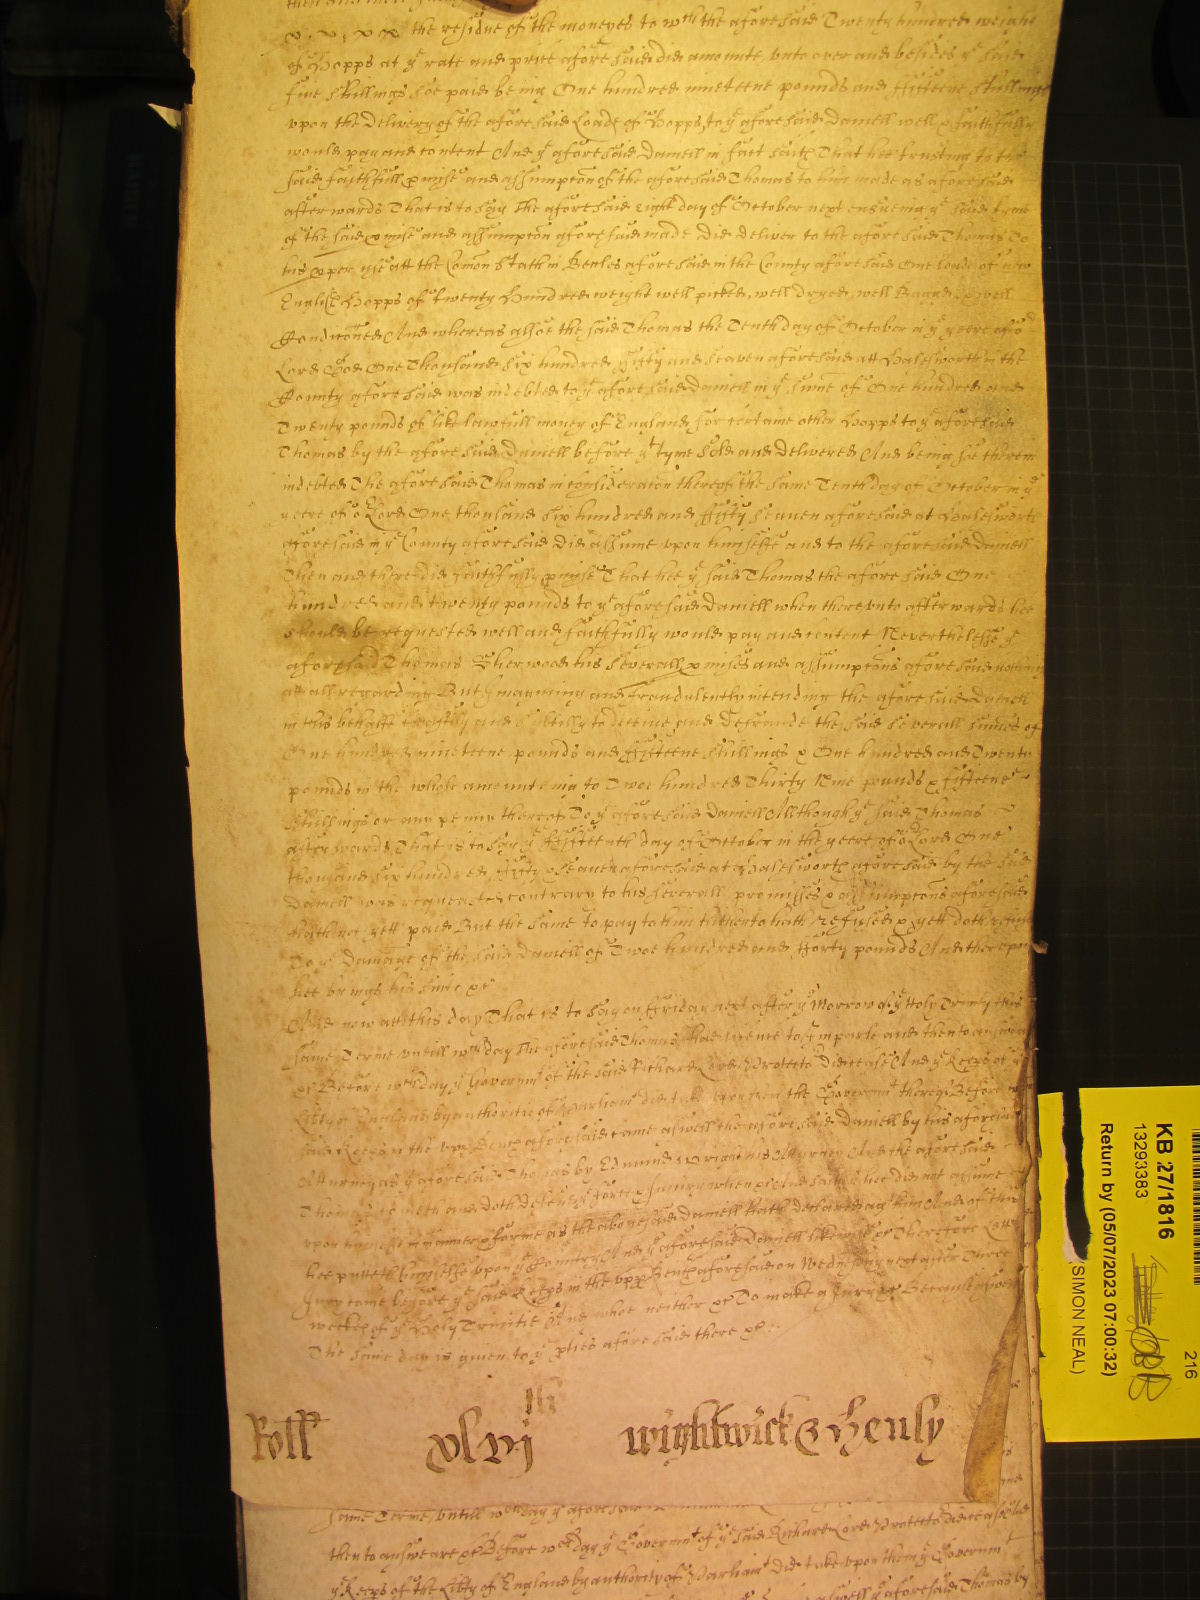 the residue of the moneyes to wth the aforesaid Twenty hundred weight
of Hopps at ye rate and price aforesaid did amounte vnto over and besides ye said
five shillings soe paid being One hundred nineteene pounds and fifteene shillings
vpon the delivery of the aforesaid Loade of Hopps, to ye aforesaid Daniell well & faithfully
would pay and content And ye aforesaid Daniell in fact saith That hee trusting to the
said faithfull pmise and assumpcon of the aforesaid Thomas to him made as aforesaid
afterwards That is to say The aforesaid eight day of October next ensueing ye said tyme
of the said pmise and assumpcon aforesaid made Did deliver to the aforesaid Thomas To
his pper vse att the Comon Stath in Beccles aforesaid in the County aforesaid One loade of new
English Hopps of Twenty Hundred weight well picked, well dryed, well Bagged & well
Condiconed And whereas alsoe the said Thomas the Tenth day of October in ye yeere of or
Lord God One Thousand Six hundred fifty and seaven aforesaid att Halesworth in the
County aforesaid was indebted to ye aforesaid Daniell in ye sume of One hundred and
Twenty pounds of like lawfull money of England for certaine other Hopps to ye aforesaid
Thomas by the aforesaid Daniell before yt tyme sold and delivered And being soe therein
indebted The aforesaid Thomas in consideracon thereof the same Tenth day of October in ye
yeere of or Lord One thousand six hundred and fifty seaven aforesaid at Halesworth
aforesaid in ye County aforesaid Did assume vpon himselfe and to the aforesaid Daniell
then and there did faithfully pmise That hee ye said Thomas the aforesaid One
hundred and twenty pounds to ye aforesaid Daniell when therevnto afterwards hee
should be requested well and faithfully would pay and content Neverthelesse ye
aforesaid Thomas Sherwood his severall pmises and assumpcons aforesaid nothing
att all regarding But ymagining and fraudulently intending the aforesaid Daniell
in this behalfe craftily and subtilly to deceive and defraude the said severall sumes of
One hundred nineteene pounds and fifteene shillings & One hundred and Twenty
pounds in the whole amounting to Twoe hundred Thirty Nine pounds & fifteene
shillings or any penny thereof To ye aforesaid Daniell Allthough ye said Thomas
afterwards That is to say ye fifteenth day of October in the yeere of or Lord One
thousand six hundred fifty & seaven aforesaid at Halesworth aforesaid by the said
Daniell was requested contrary to his severall promisses & assumpcons aforesaid
Hath not yett paid But the same to pay to him hitherto hath refused & yett doth refuse
To ye damage of the said Daniell of Twoe hundred and forty pounds And therevpon
hee brings his suite &c
And now att this day That is to say on Friday next after ye Morrow of ye Holy Trinity this
same Terme vntill wch day The aforesaid Thomas had leave to Imparle and then to answeare
&c Before wch day ye Governmt of the said Richard Lord Protector did cease And ye Keeps of ye
Libty of England by authoritie of Parliamt did take vpon them the Governmt thereof Before ye
said Keeps in the vpp Bench aforesaid came aswell the aforesaid Daniell by his aforesaid
Atturney as ye aforesaid Thomas by Edmund Wright his Atturney And the aforesaid
Thomas cometh and doth defend ye force & Iniury when &c And saith hee did not assume
vpon himselfe in manner & forme as the abovesaid Daniell hath declared agt him And of this
hee putteth himselfe vpon ye Country And ye aforesaid Daniell likewise &c Therefore Lett a
Iury come before ye said Keeps in the vpp Bench aforesaid on Wednesday next after Three
weekes of ye Holy Trinitie And whoe neither &c To make a Iury &c Because aswell
The same day is given to ye pties aforesaid there &c
Roll xlvij Wightwick & Henly
same Terme vntill wch day ye aforesaid
then to answeare &c Before wch day ye Governmt of ye said Richard Lord Protector did cease And
ye Keeps of the Libty of England by authority of Parliamt did take vpon them ye Governmt
ye aforesaid Thomas by
KB 27/1816
13293383
Return by (05/07/2023 07:00:32)
(SIMON NEAL)
216